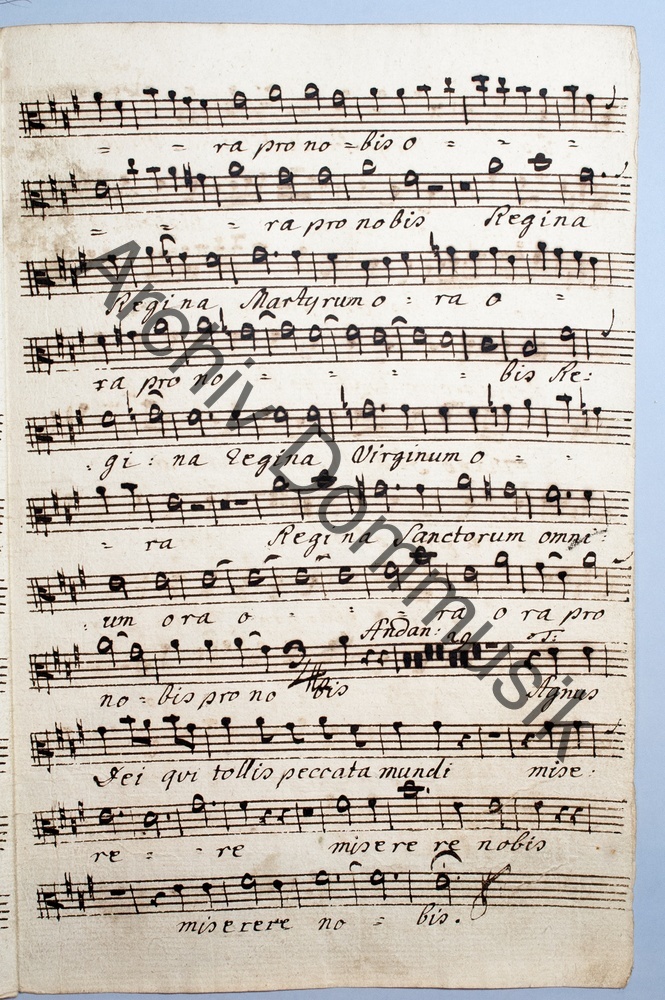 = = ra pro no = bis o = = =
= = = ra pro nobis Regina
Regina Martyrum o : ra o =
ra pro no = = = = = bis Re:
gi : na Regina Virginum o = =
= ra Regina Sanctorum omni:
um o ra o = = = ra o ra pro
Andan: 20 T:
no = bis pro no bis Agnus
Dei qui tollis peccata mundi mise:
re = = re misere re nobis
miserere no = bis.
Archiv Dommusik